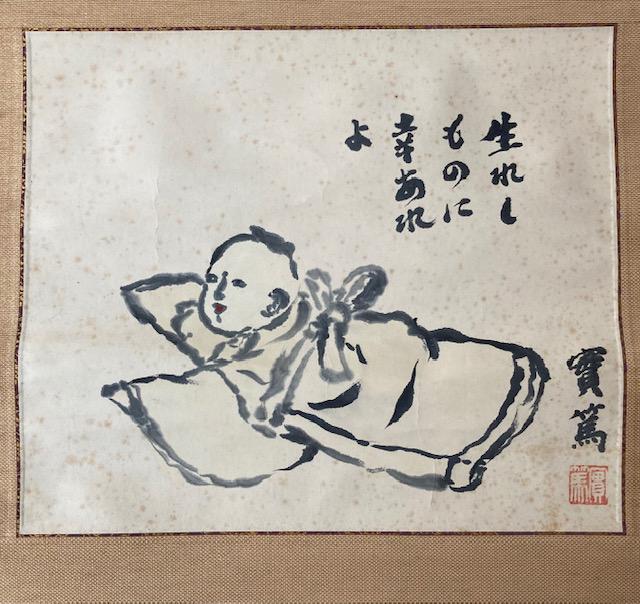 生れし
ものに
幸あれ
よ
實篤
實篤